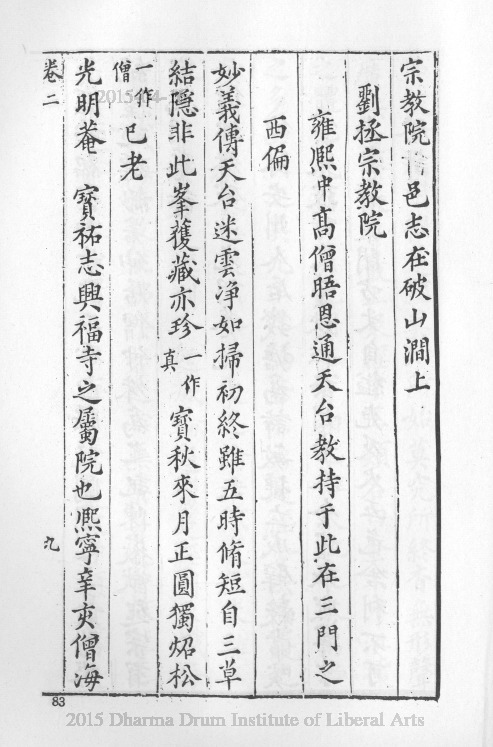 宗教院舊邑志在破山澗上
劉拯宗教院
雍熙中高僧晤恩通天台教持于此在三門之
西偏
妙義傳天台迷雲净如掃初終雖五時脩短自三草
結隱非此峯獲藏亦珍一作真寶秋來月正圓獨炤松
一作僧已老
光明菴 寶祐志興福寺之屬院也熙寧辛亥僧海
卷二
九
83
2015 Dharma Drum Institute of Liberal Arts